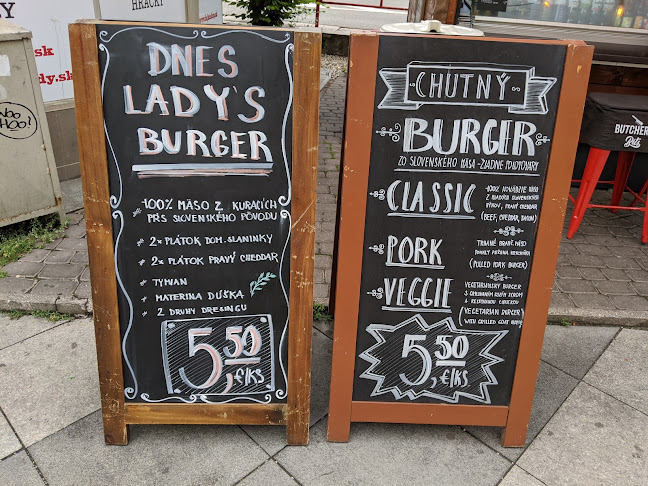 HRAČKY
.sk
dy.sk
WOO
HOO!
DNES
LADY'S
BURGER
100% MÄSO Z KURACÍCH
PŔS SLOVENSKÉHO PÔVODU
2x PLÁTOK DOM. SLANINKY
2x PLÁTOK PRAVÝ CHEDDAR
TYMIAN
MATERINA DÚŠKA
2 DRUHY DRESINGU
5,50 €/KS
CHUTNÝ
BURGER
ZO SLOVENSKÉHO MÄSA - ŽIADNE POLOTOVARY
CLASSIC
100% HOVÄDZIE MÄSO
PRAVÝ CHEDDAR
(BEEF, CHEDDAR, BACON)
PORK
TRHANÉ BRAVČ. MÄSO
(PULLED PORK BURGER)
VEGGIE
VEGETARIÁNSKY BURGER
S GRILOVANÝM KOZÍM SYROM
(VEGETARIAN BURGER)
WITH GRILLED GOAT
5,50 €/KS
BUTCHER